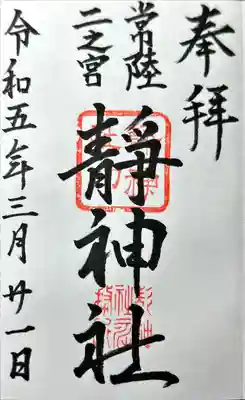 奉拜
常陸
二之宮
靜神社
令和五年三月廿一日